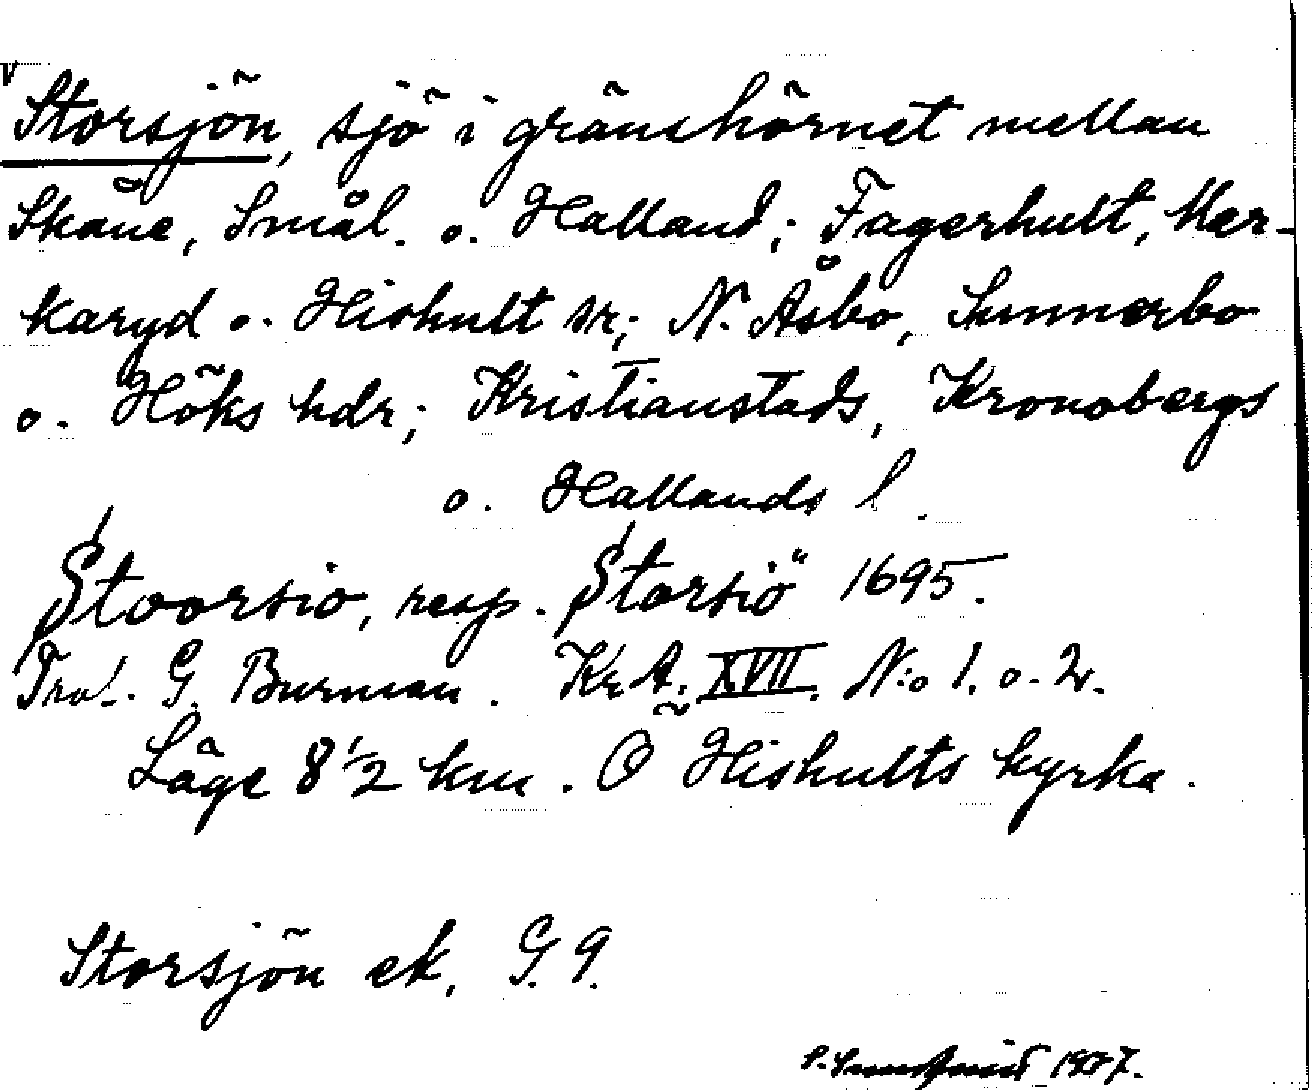 v
Storsjön, sjö i gränshörnet mellan
Skåne, Smål. o. Halland; Fagerhult, Mar-
karyd o. Hishult sr; N. Åsbo, Sunnerbo
o. Höks hdr; Kristianstads, Kronobergs
o. Hallands l.
Stoorsio, resp. Storsiö 1695.
G. Burman. Kr A. XVII. N:o 1. o. 2.
Läge 8 1/2 km. Ö Hishults kyrka.
Storsjön ek, G. 9.